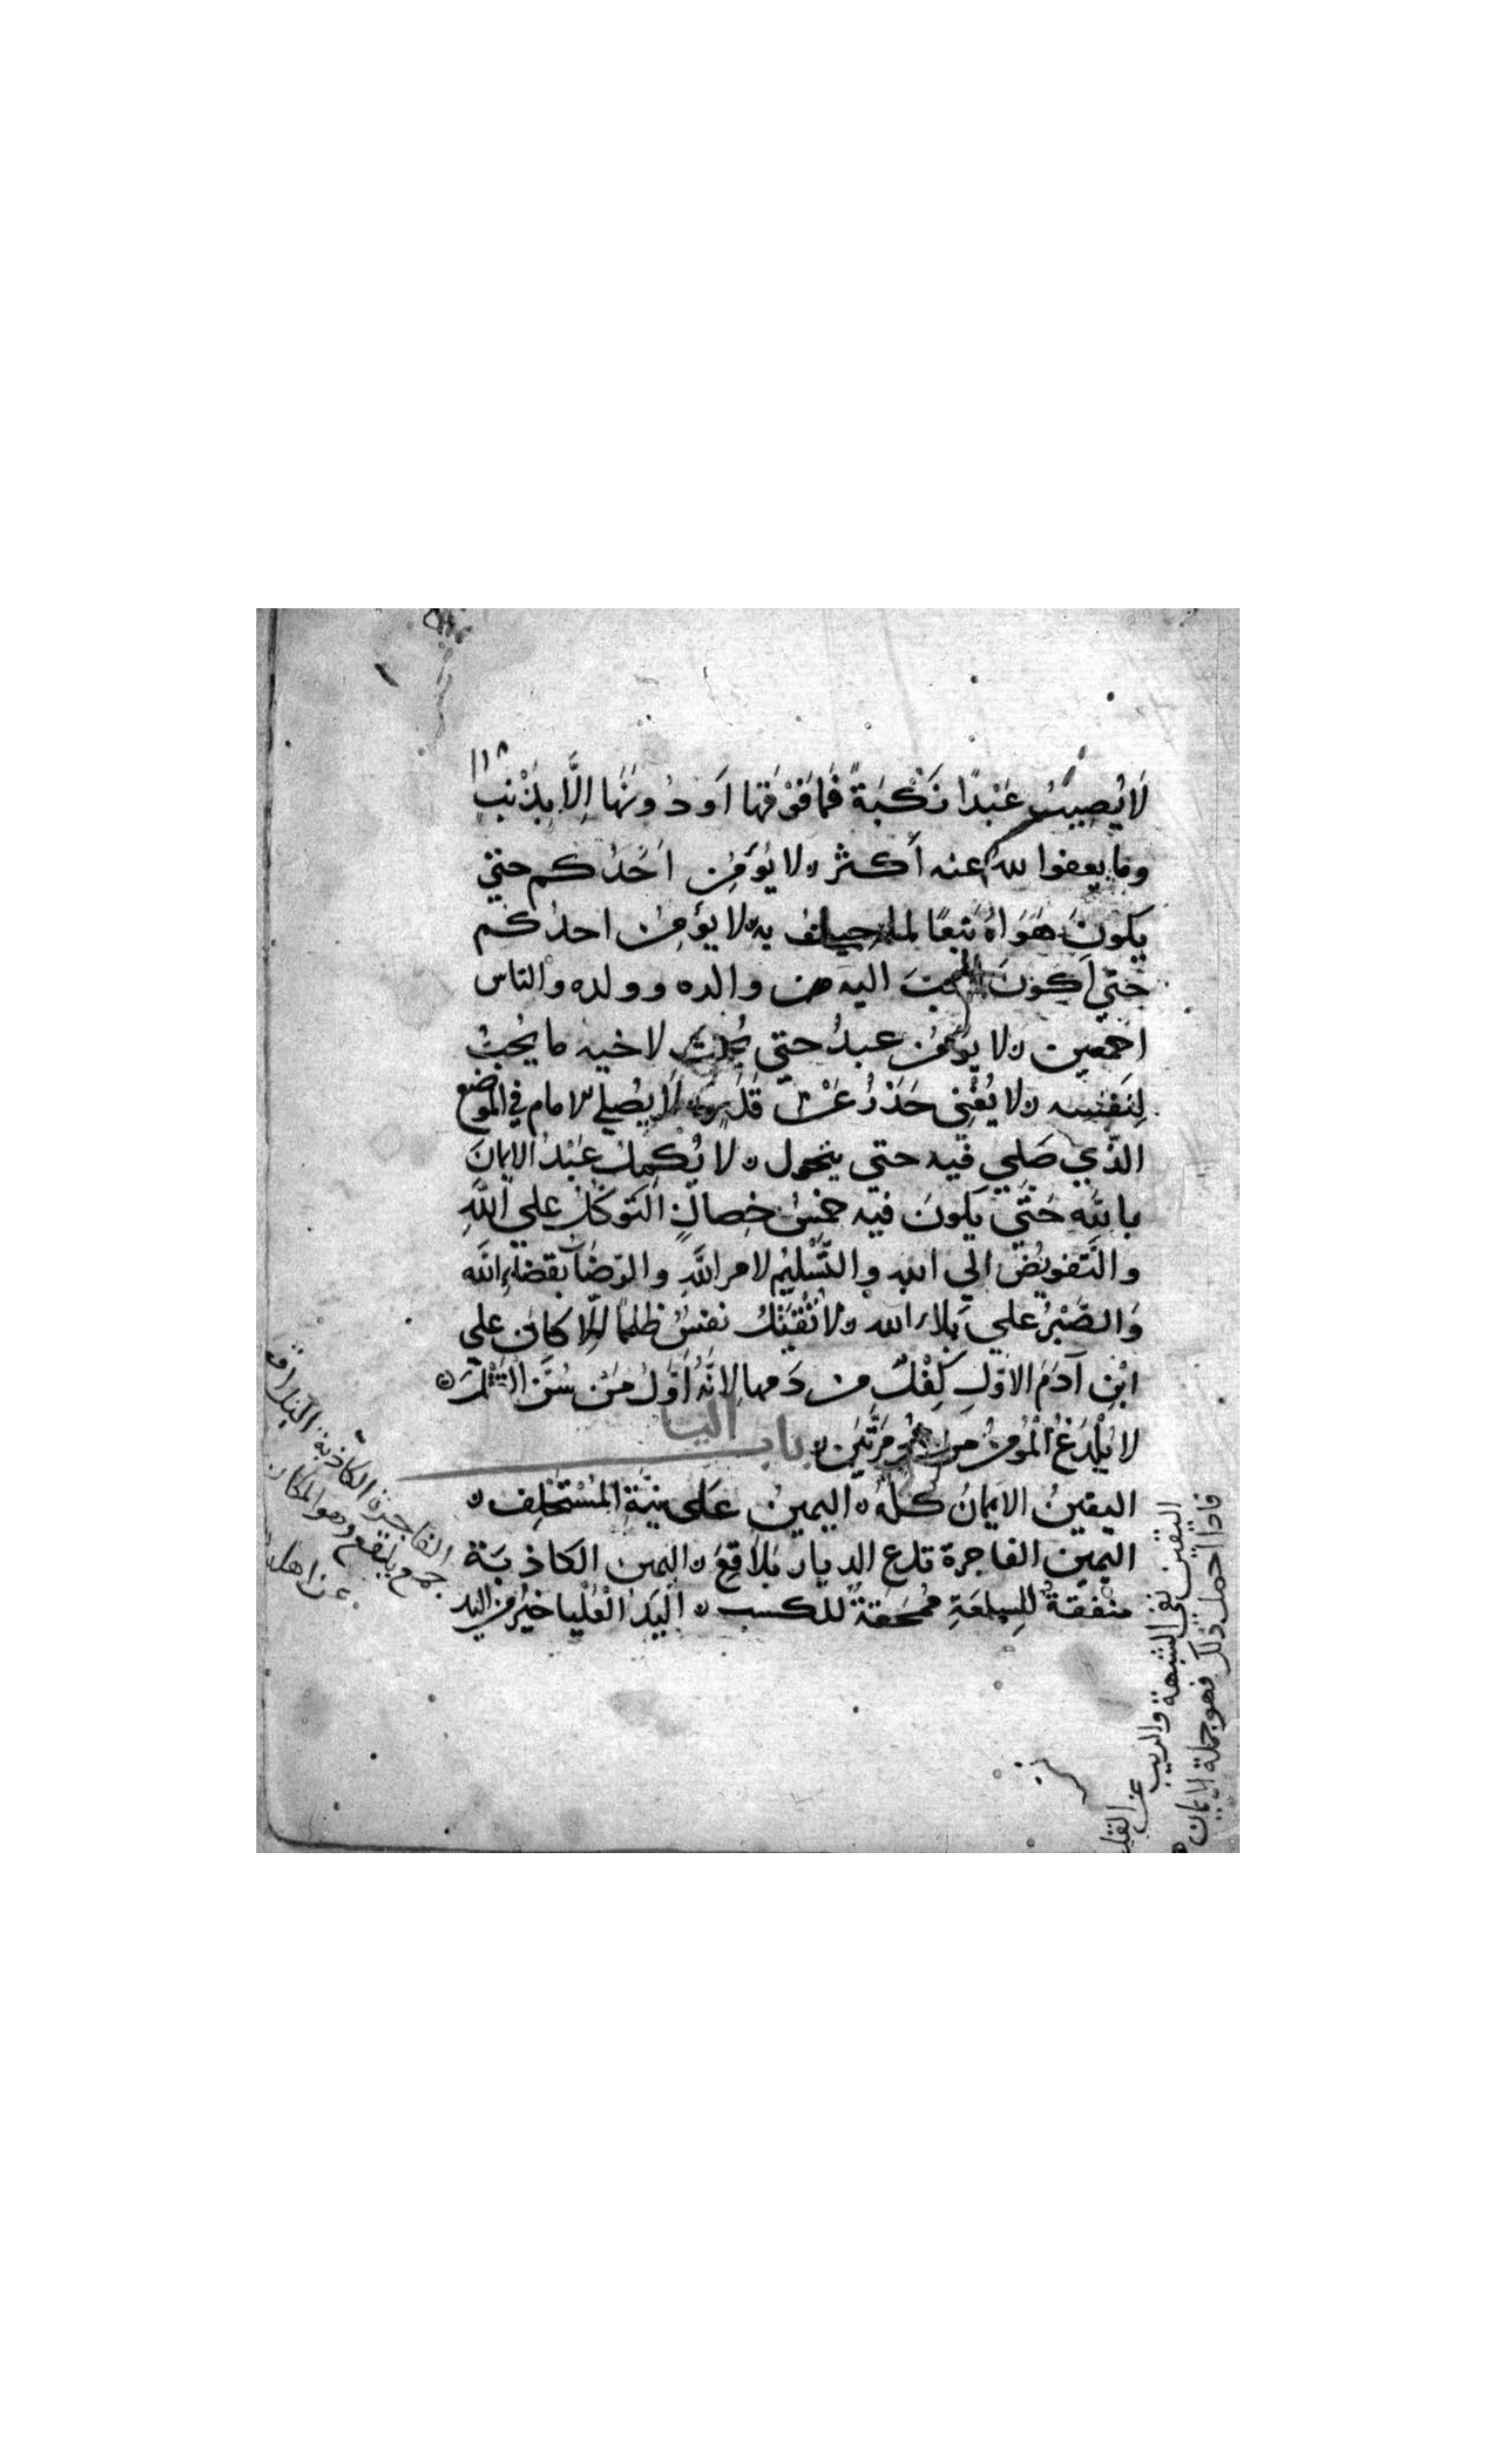 ١١٨
لَا يُصِيبُ عَبْدًا نَكْبَةً فَمَا فَوْقَهَا اَو دُونَهَا اِلَّا بِذَنْبٍ
وما يعفوا لله عنه أكثر ٥ لا يُؤمِن اَحَدُكم حتي
يكونَ هَوَاهُ تَبَعًا لما جيت به ٥ لا يؤمِنُ احدُكم
حَتّي اَكونَ احبَّ اليه من والده وولده والناس
اجمعين ٥ لا يؤمن عبدُ حتي يُحِبَّ لاخيه ما يُحِبُّ
لِنَفْسِه ٥ لا يُغْنِي حَذَرُ عَنْ قَدَرٍ لَا يُصلي الامام في الموضع
الذّي صَلي فيه حتي يتحول ٥ لا يُكمِلُ عَبْدُ الايمانَ
بالله حَتّي يَكونَ فيه خمسُ خِصالٍ التَوكّلُ علي اللَّهِ
والتَّفويضُ الي اللهِ والتَّسْلِيمُ لامر اللَّهِ والرّضا بقضاءِ اللَّه
وَالصَّبْرُ علي بَلاءِ الله ٥ لا تُقْتَلُ نفسُ ظلمًا اِلّا كان علي
ابْنِ آدَمَ الاوّلِ كِفْلٌ من دَمها لانَّهُ اَوَّلُ مَنْ سَنَّ القَتْلَ ٥
لا يُلْدَغُ المُؤمنُ من جُحر مَرَّتَين ٥ باب اليا
اليقينُ الايمَانُ كلّهُ ٥ اليمينُ عَلَى نِيَّةِ المُسْتَحْلِف ٥
اليمِين الفاجرة تدع الديار بَلَاقِعَ ٥ اليمين الكاذبَة
منْفقةٌ للسِلعَةِ مُمْحَقَةٌ للكسب ٥ اَليَدُ الْعُلْيا خيْرُ من اليد
الفاجرة الكاذبة البلاقع
جمع بلقع وهو المكان
عن اهله
اليقين نفي الشبهة والريب عن القلب
فاذا حصل ذلك فهو جملة الايمان